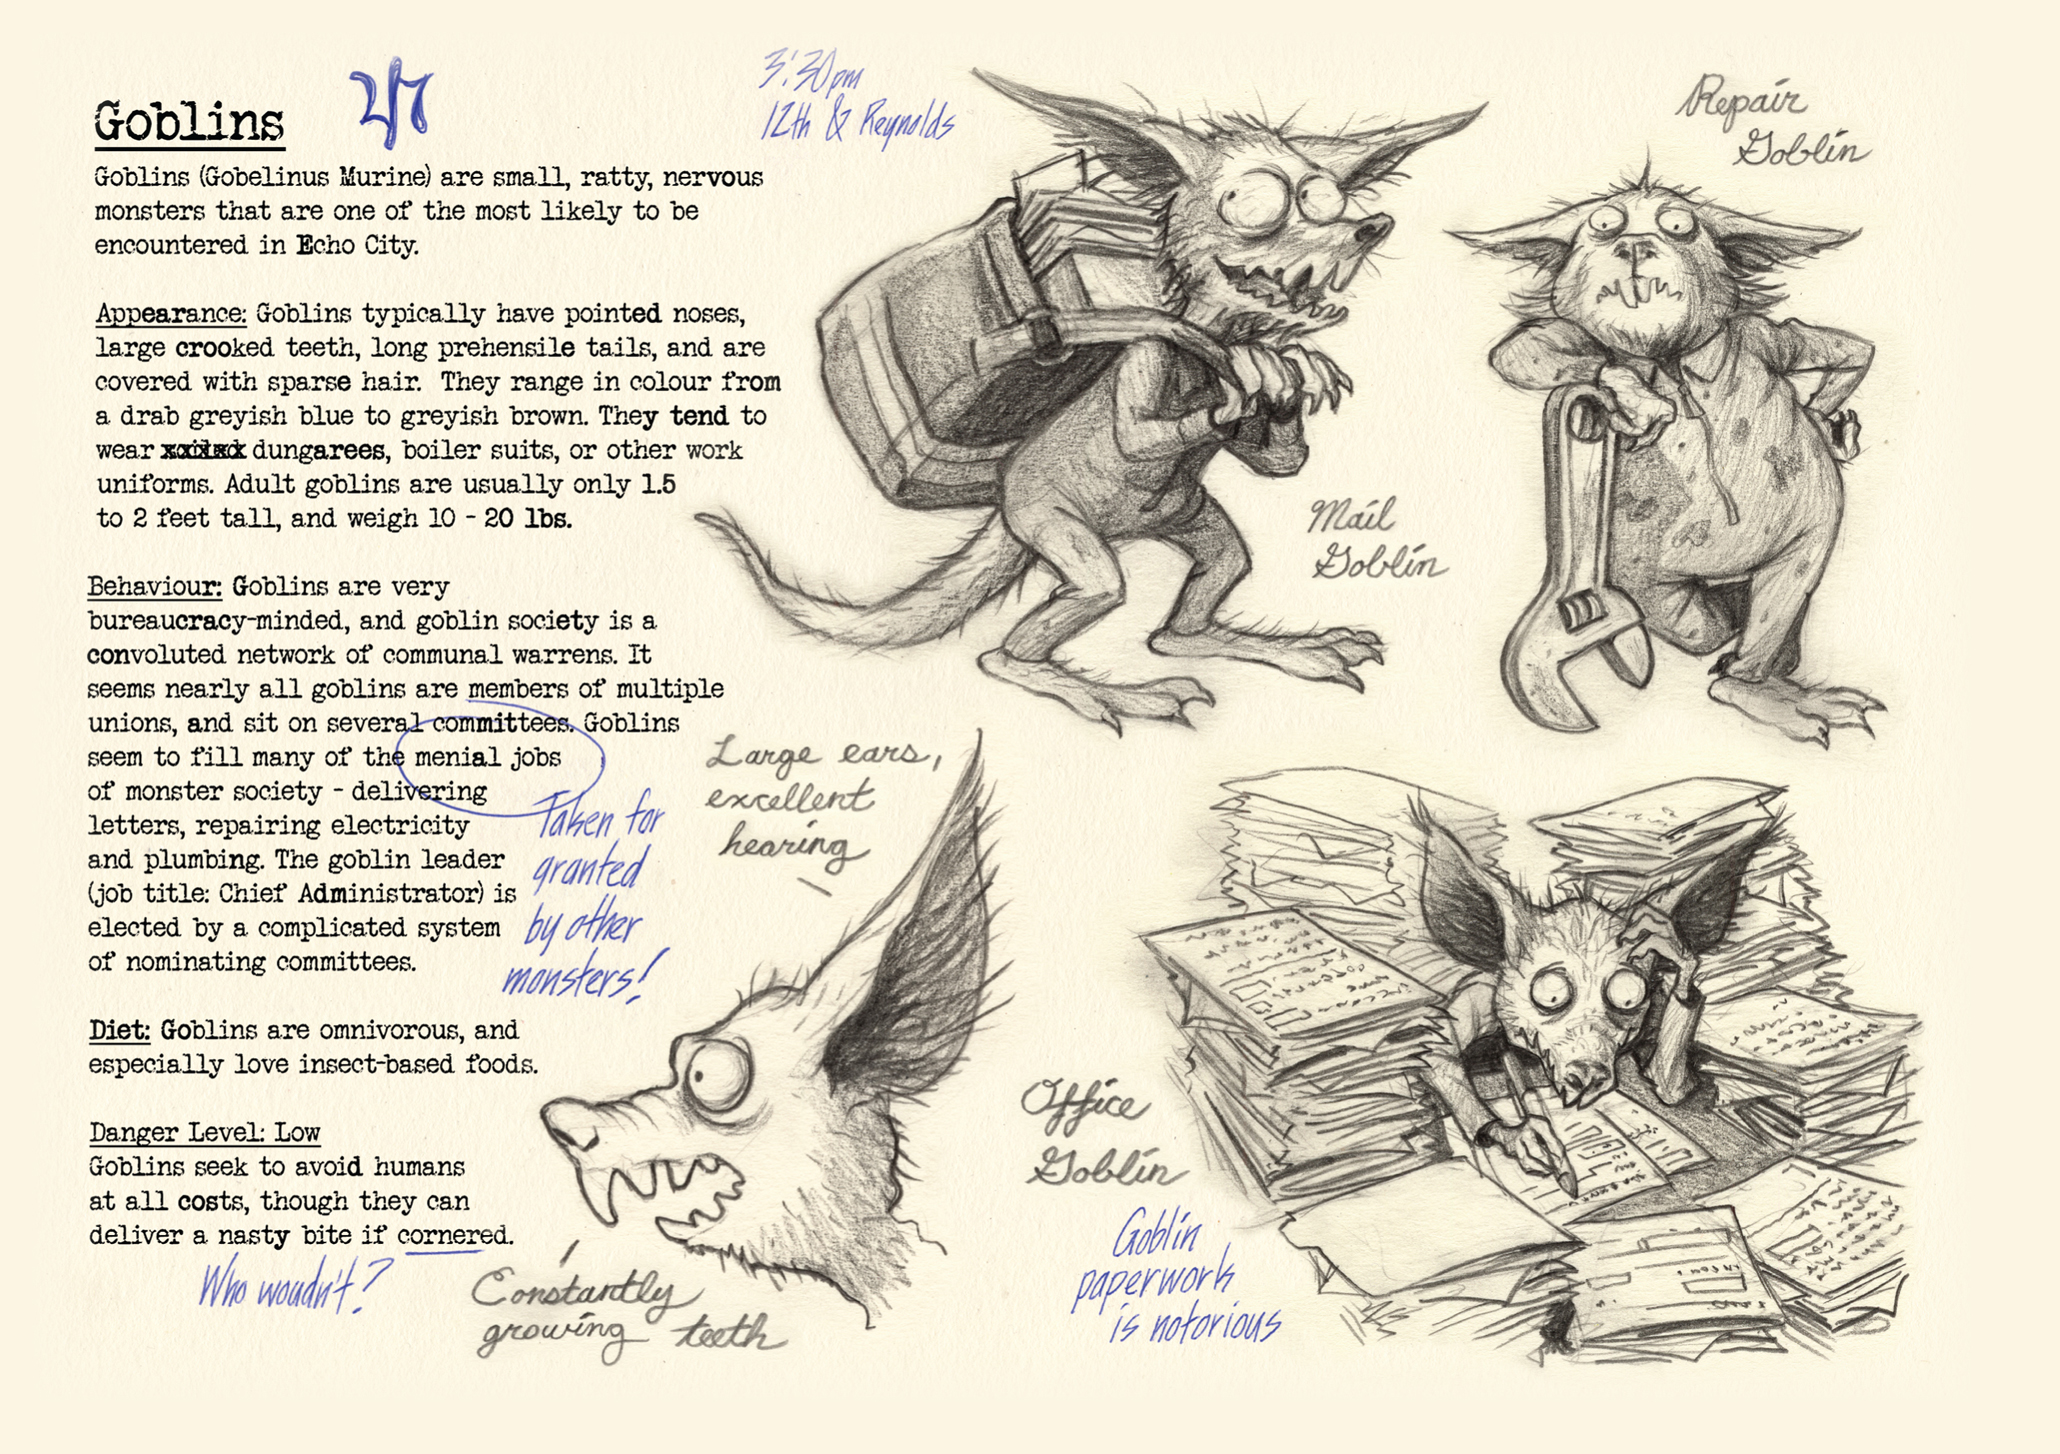 Goblins
3:30pm
12th & Reynolds
Goblins (Gobelinus Murine) are small, ratty, nervous
monsters that are one of the most likely to be
encountered in Echo City.
Appearance: Goblins typically have pointed noses,
large crooked teeth, long prehensile tails, and are
covered with sparse hair. They range in colour from
a drab greyish blue to greyish brown. They tend to
wear dungarees, boiler suits, or other work
uniforms. Adult goblins are usually only 1.5
to 2 feet tall, and weigh 10 - 20 lbs.
Behaviour: Goblins are very
bureaucracy-minded, and goblin society is a
convoluted network of communal warrens. It
seems nearly all goblins are members of multiple
unions, and sit on several committees. Goblins
seem to fill many of the menial jobs
of monster society - delivering
letters, repairing electricity
and plumbing. The goblin leader
(job title: Chief Administrator) is
elected by a complicated system
of nominating committees.
Taken for
granted
by other
monsters!
Diet: Goblins are omnivorous, and
especially love insect-based foods.
Danger Level: Low
Goblins seek to avoid humans
at all costs, though they can
deliver a nasty bite if cornered.
Who woudn't?
Repair
Goblin
Mail
Goblin
Large ears,
excellent
hearing
Constantly
growing teeth
Office
Goblin
Goblin
paperwork
is notorious